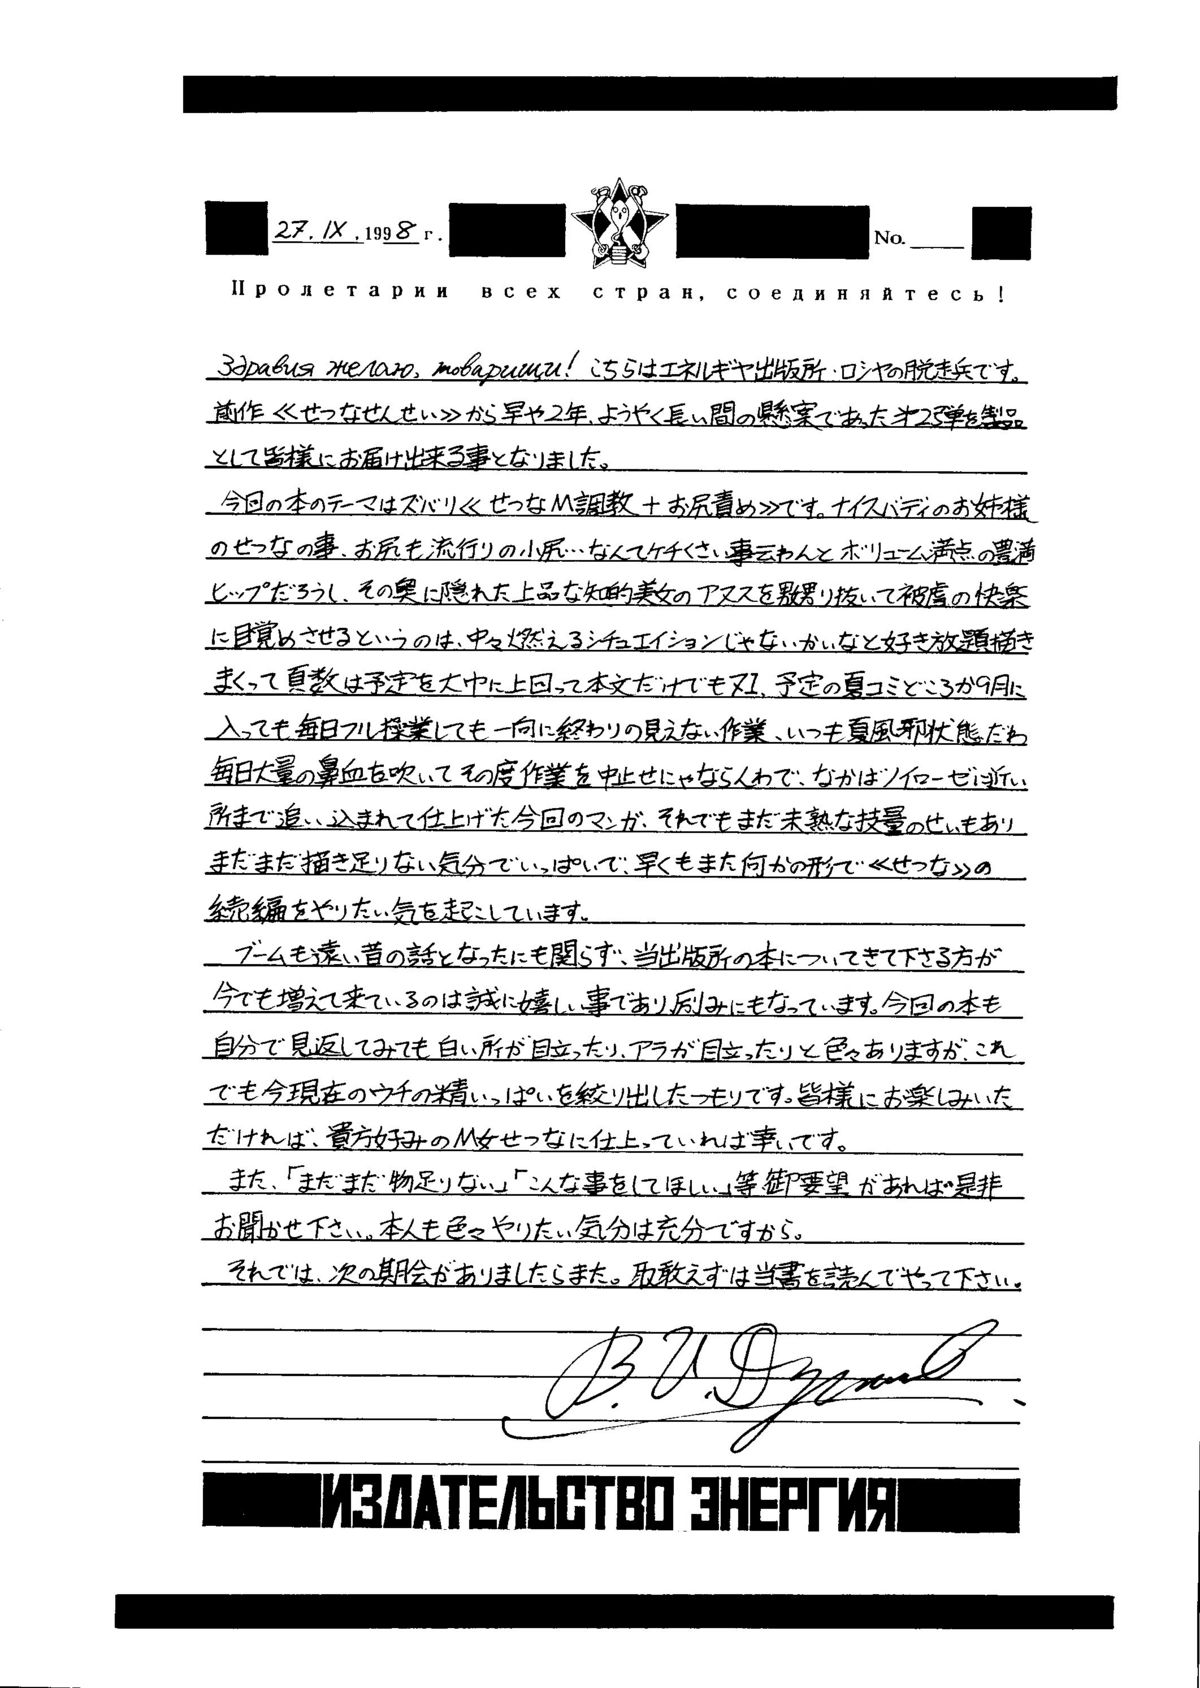 27.IX.1998г. No.
Пролетарии всех стран, соединяйтесь!
Здравия желаю, товарищи! こちらはエネルギヤ出版所・ロシヤの脱走兵です。
前作≪せつなせんせい≫から早や2年、ようやく長い間の懸案であった第2弾を製品
として皆様にお届け出来る事となりました。
今回の本のテーマはズバリ≪せつなM調教+お尻責め≫です。ナイスバディのお姉様
のせつなの事、お尻も流行りの小尻…なんてケチくさい事云わんとボリューム満点の豊満
ヒップだろうし、その奥に隠れた上品な知的美女のアヌスを嬲り抜いて被虐の快楽
に目覚めさせるというのは、中々燃えるシチュエイションじゃないかいなと好き放題描き
まくって頁数は予定を大巾に上回って本文だけでも71、予定の夏コミどころか9月に
入っても毎日フル操業しても一向に終わりの見えない作業、いつも夏風邪状態だわ
毎日大量の鼻血を吹いてその度作業を中止せにゃならんわで、なかばノイローゼに近い
所まで追い込まれて仕上げた今回のマンガ、それでもまだ未熟な技量のせいもあり
まだまだ描き足りない気分でいっぱいで、早くもまた何かの形で≪せつな≫の
続編をやりたい気を起こしています。
ブームも遠い昔の話となったにも関らず、当出版所の本についてきて下さる方が
今でも増えて来ているのは誠に嬉しい事であり励みにもなっています。今回の本も
自分で見返してみても白い所が目立ったり、アラが目立ったりと色々ありますが、これ
でも今現在のウチの精いっぱいを絞り出したつもりです。皆様にお楽しみいた
だければ、貴方好みのM女せつなに仕上っていれば幸いです。
また、「まだまだ物足りない」「こんな事をしてほしい」等御要望があれば是非
お聞かせ下さい。本人も色々やりたい気分は充分ですから。
それでは、次の期会がありましたらまた。取敢えずは当書を読んでやって下さい。
В.И.
ИЗДАТЕЛЬСТВО ЭНЕРГИЯ